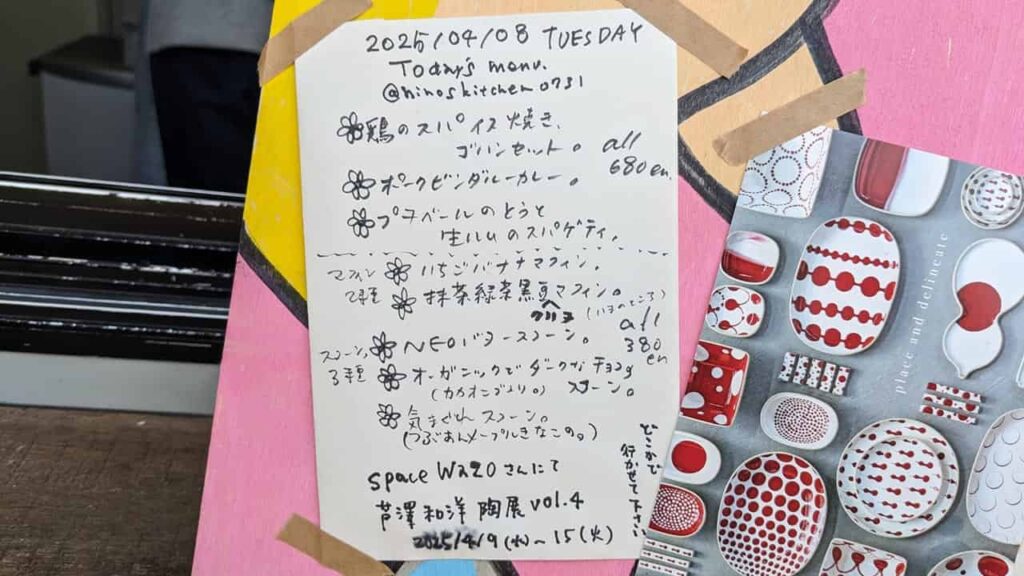 2025/04/08 TUESDAY
Today's menu.
@ninoskitchen0731
鶏のスパイス焼き、
ゴハンセット。
all
680en
ポークビンダルーカレー。
プチベールのとうと
生ハムのスパゲティ。
マフィン
2種
いちごバナナマフィン。
抹茶緑茶黒豆マフィン。
(いまのところ)
all
380
en
スコーン
3種
NEOバタースコーン。
オーガニックでダークなチョコ
(カカオニブより。) スコーン。
気まぐれスコーン。
(つぶあんメープルきなこの。)
space WAZOさんにて
芦澤和洋 陶展 vol.4
2025/4/9(水)〜15(火)
行かせて下さい
place and delineate